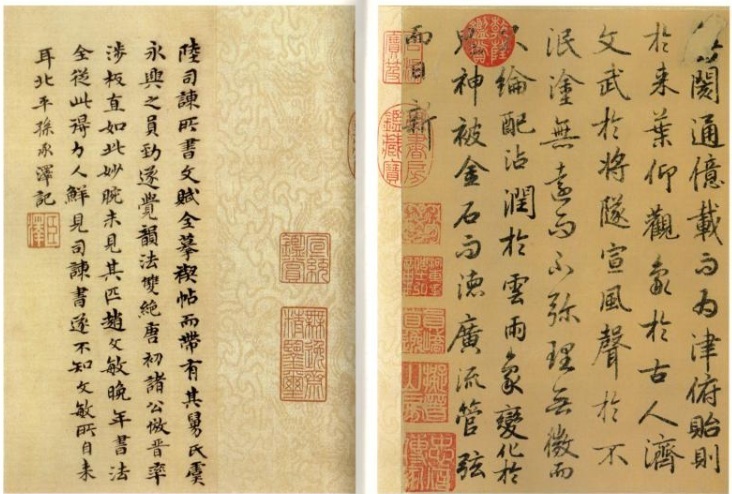 閡通億載而为津俯貽則
於来葉仰觀象於古人濟
文武於將隧宣風聲於不
泯塗無遠而不弥理無微而
不綸配沾潤於雲雨象變化於
鬼神被金石而徳廣流管弦
而日新
乾隆鑑賞
宣統鑑賞
無逸齋精鑒璽
陸司諫所書文賦全摹禊帖而帶有其舅氏虞
永興之員勁遂覺韻法雙絕唐初諸公倣晉率
涉板直如此妙腕未見其匹趙文敏晚年書法
全從此得力人鮮見司諫書遂不知文敏所自来
耳北平孫承澤記